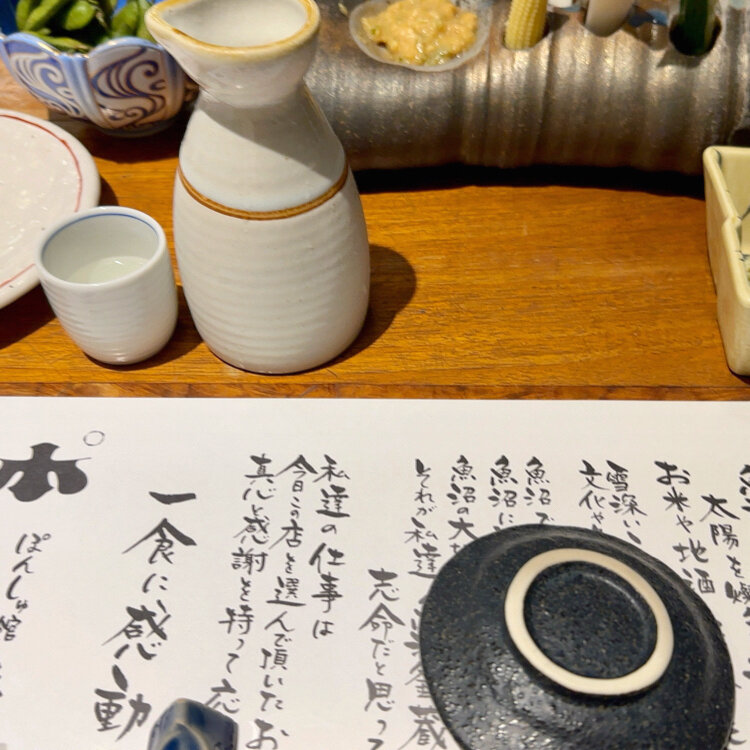 太陽を
お米や地酒
雪深い
文化や
魚沼で
魚沼に
魚沼の大
それが私達 釜蔵
志命だと思って
私達の仕事は
今日この店を選んで頂いたお
真心と感謝を持って応
一食に、感動
ぽんしゅ館